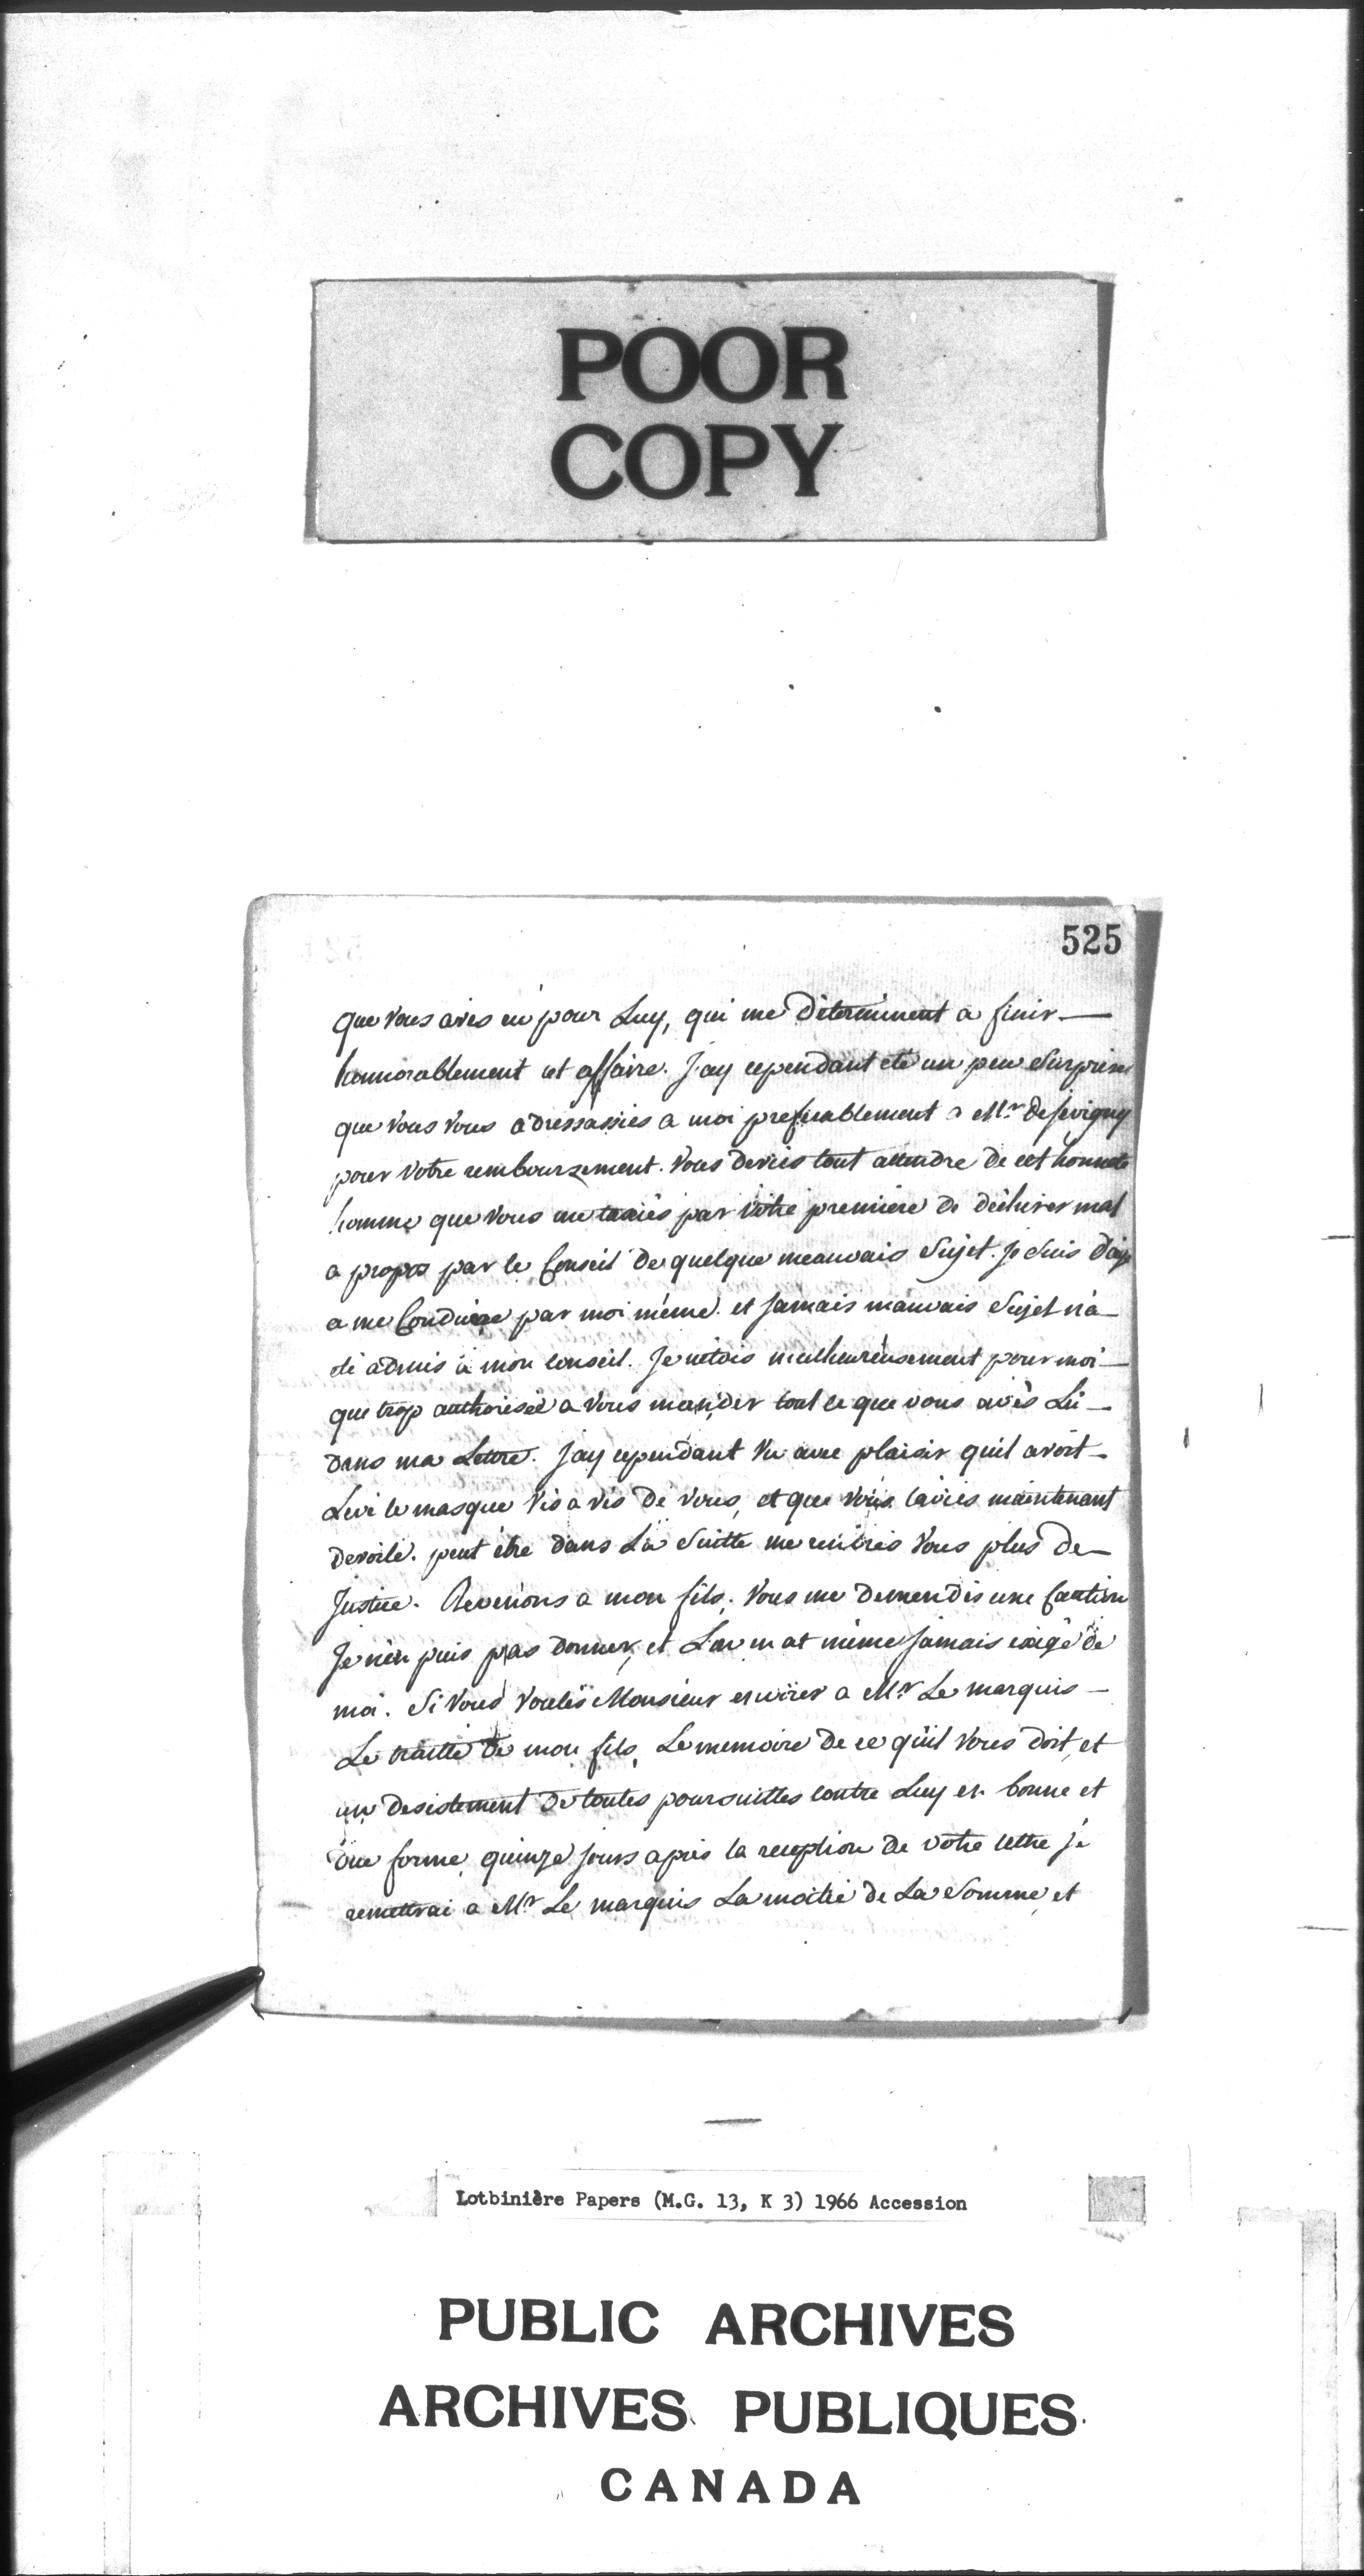 POOR
COPY
525
que vous aviés eü pour Luy, qui me déterminent a finir —
honnorablement cet affaire. J'ay cependant eté un peu surprise
que vous vous adressassiés a moi preferablement a Mr. de sevigny
pour votre rembourzement. Vous deviés tout attendre de cet honnete
homme que vous me taxiés par votre premiere de déchirer mal
a propos par le Conseil de quelque meauvais Sujet. Je suis d'age
a me Conduire par moi même. et Jamais mauvais Sujet n'a —
eté admis a mon conseil. Je n'etois malheureusement pour moi —
que trop authorisée a vous mander tout ce que vous avés Lü —
dans ma Lettre. J'ay cependant vu avec plaisir quil avoit —
Levé le masque vis a vis de vous, et que vous laviés maintenant
devoilé. peut être dans La Suitte me rendrés vous plus de —
Justice. Revenons a mon fils. Vous me demandés une Caution
Je n'en puis pas donner, et L'on m'at même Jamais exigé de
moi. Si vous voulés Monsieur envoier a Mr. Le marquis —
Le traitté de mon fils, Le memoire de ce qu'il vous doit, et
un desistement de toutes poursuittes contre Luy en bonne et
düe forme, quinze jours après la reception de votre lettre je
remettrai a Mr. Le marquis La moitié de La Somme, et
Lotbinière Papers (M.G. 13, K 3) 1966 Accession
PUBLIC ARCHIVES
ARCHIVES PUBLIQUES
CANADA